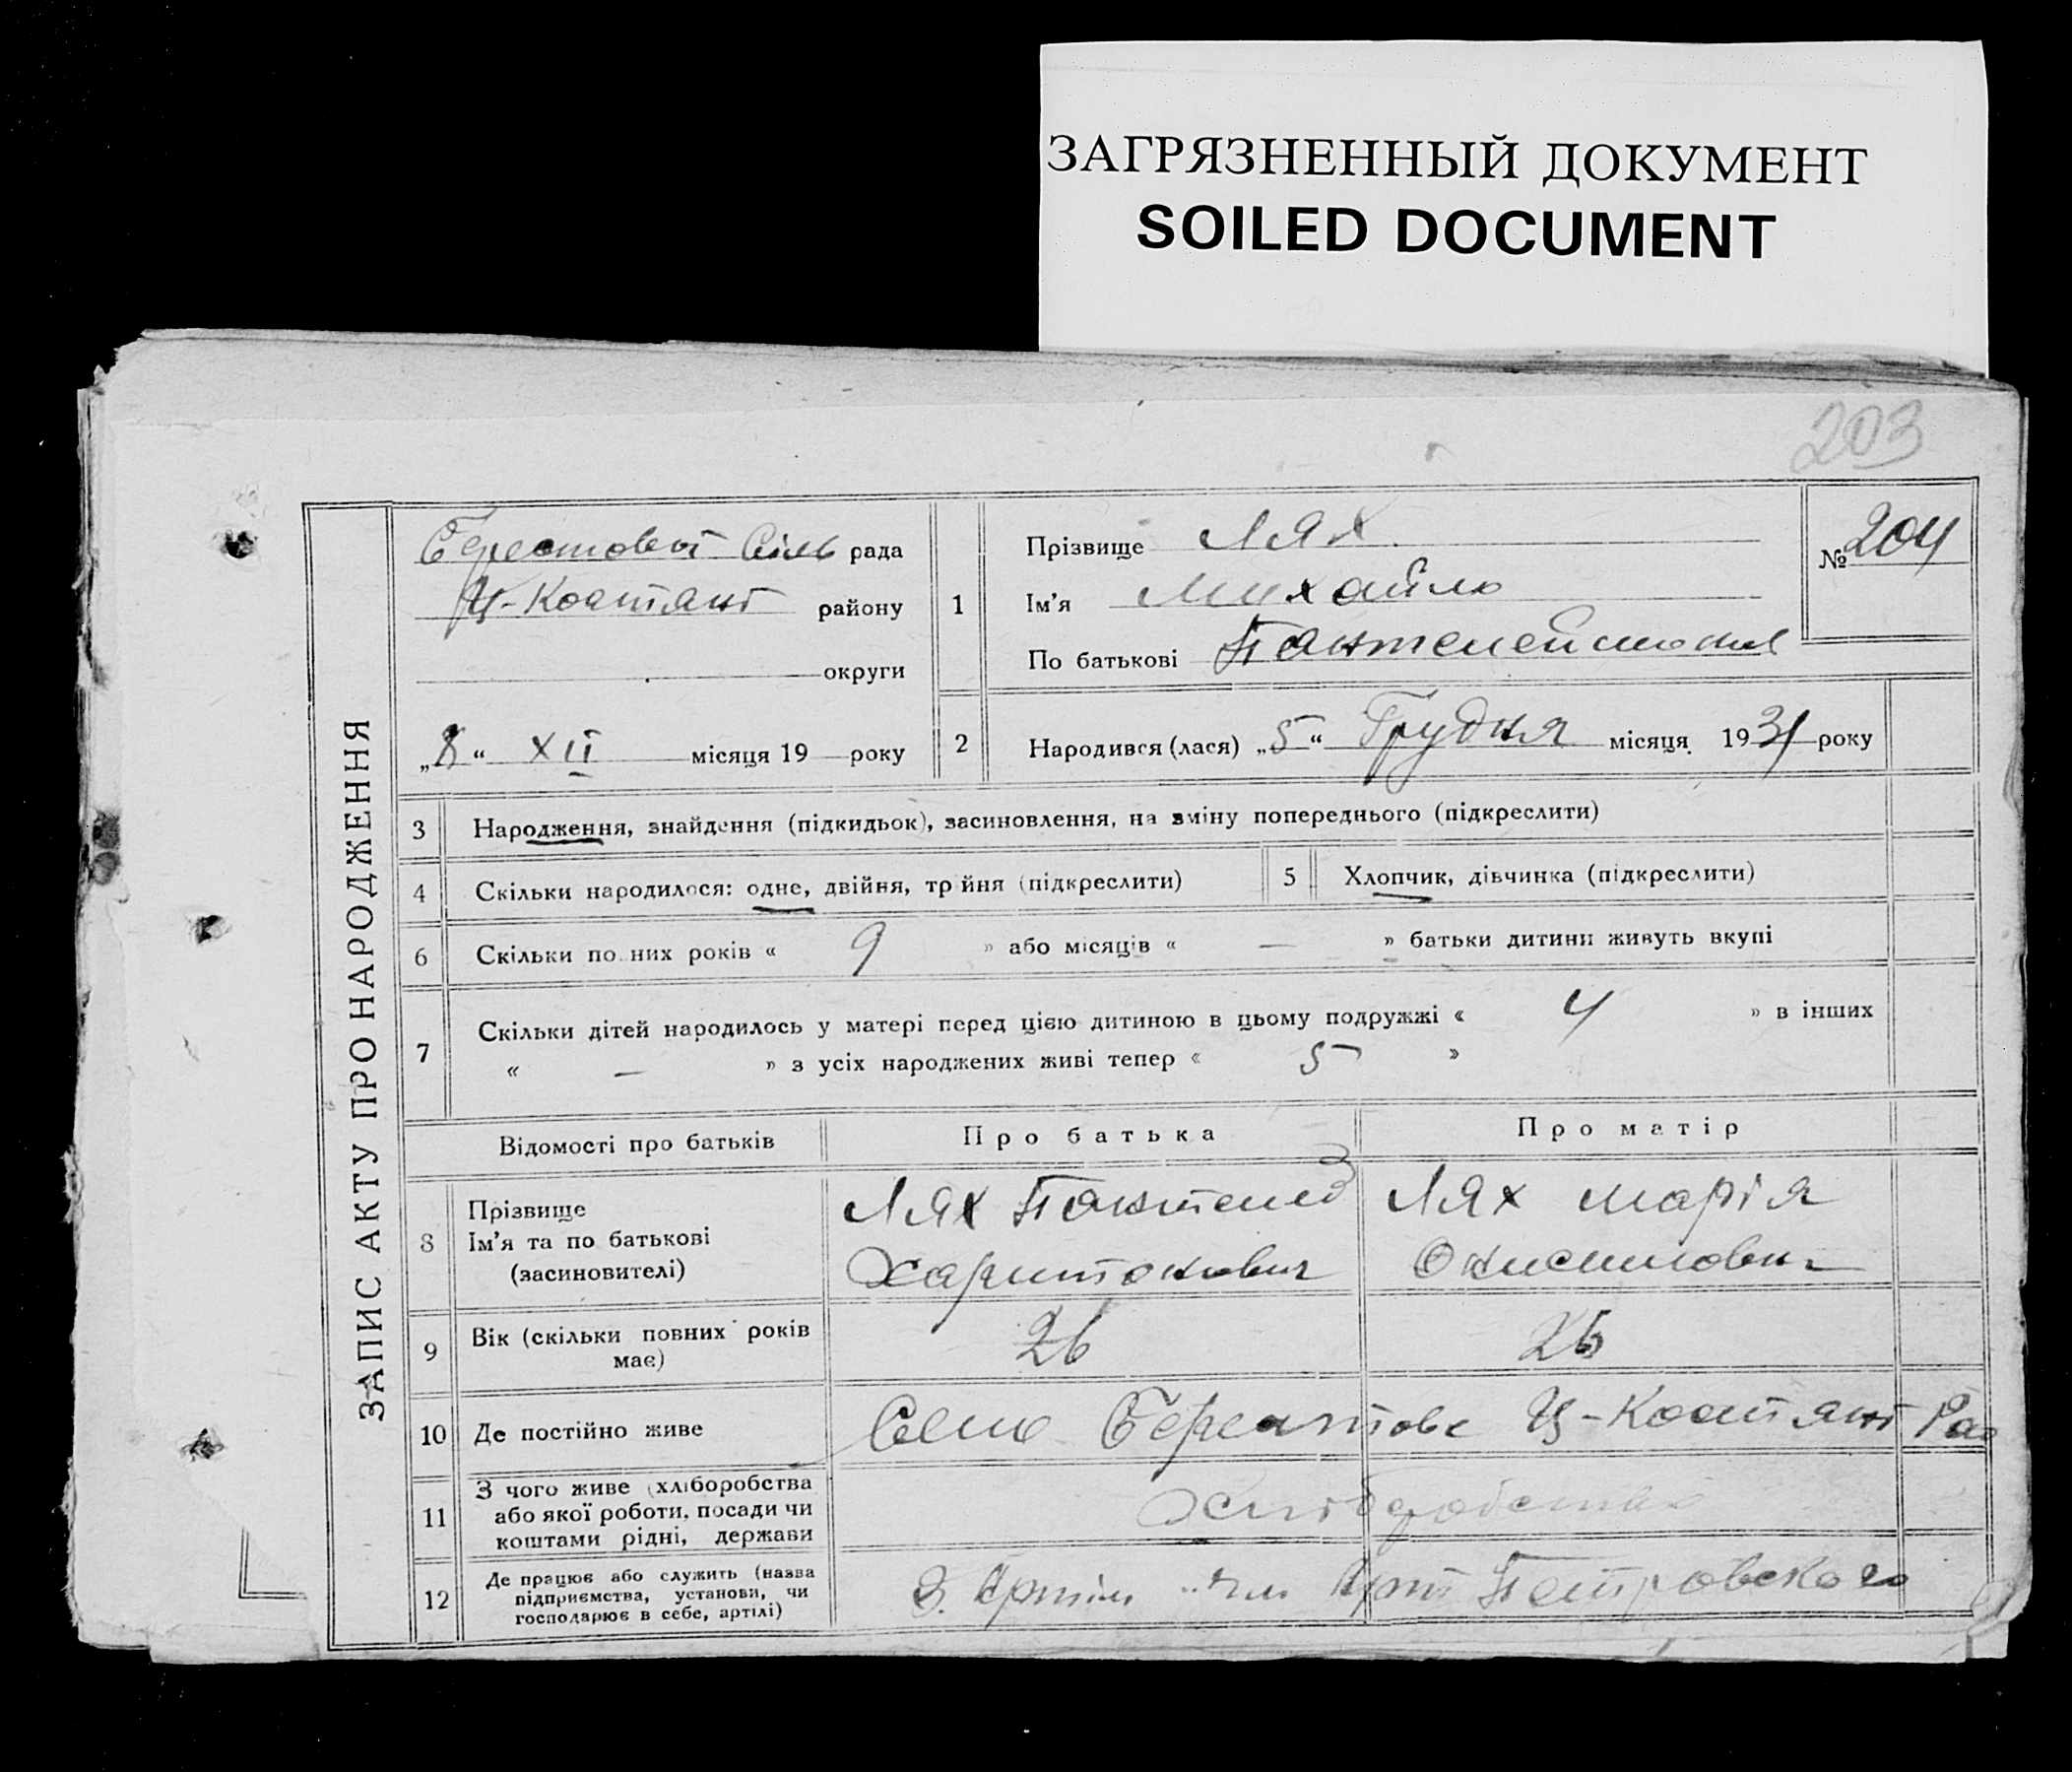 ЗАГРЯЗНЕННЫЙ ДОКУМЕНТ
SOILED DOCUMENT
203
ЗАПИС АКТУ ПРО НАРОДЖЕННЯ
Берестовет Сіль рада
Ц-Костянт району
округи
„8“ XII місяця 19 року
1
Прізвище Лях
Ім'я Михайло
По батькові
№ 204
2
Народився (лася) „5“ Грудня місяця 1931 року
3 Народження, знайдення (підкидьок), засиновлення, на зміну попереднього (підкреслити)
4 Скільки народилося: одне, двійня, трійня (підкреслити)
5 Хлопчик, дівчинка (підкреслити)
6 Скільки повних років « 9 » або місяців « — » батьки дитини живуть вкупі
7 Скільки дітей народилось у матері перед цією дитиною в цьому подружжі « 4 » в інших
« — » з усіх народжених живі тепер « 5 »
Відомості про батьків Про батька Про матір
8 Прізвище
Ім'я та по батькові
(засиновителі)
Лях Пантелей
Харитонович
Лях Марія
Онисимовна
9 Вік (скільки повних років
має)
26
10 Де постійно живе Село Ц-Костянт Рай
11 З чого живе (хліборобства
або якої роботи, посади чи
коштами рідні, держави
Хліборобства
12 Де працює або служить (назва
підприємства, установи, чи
господарює в себе, артілі)
Петровского